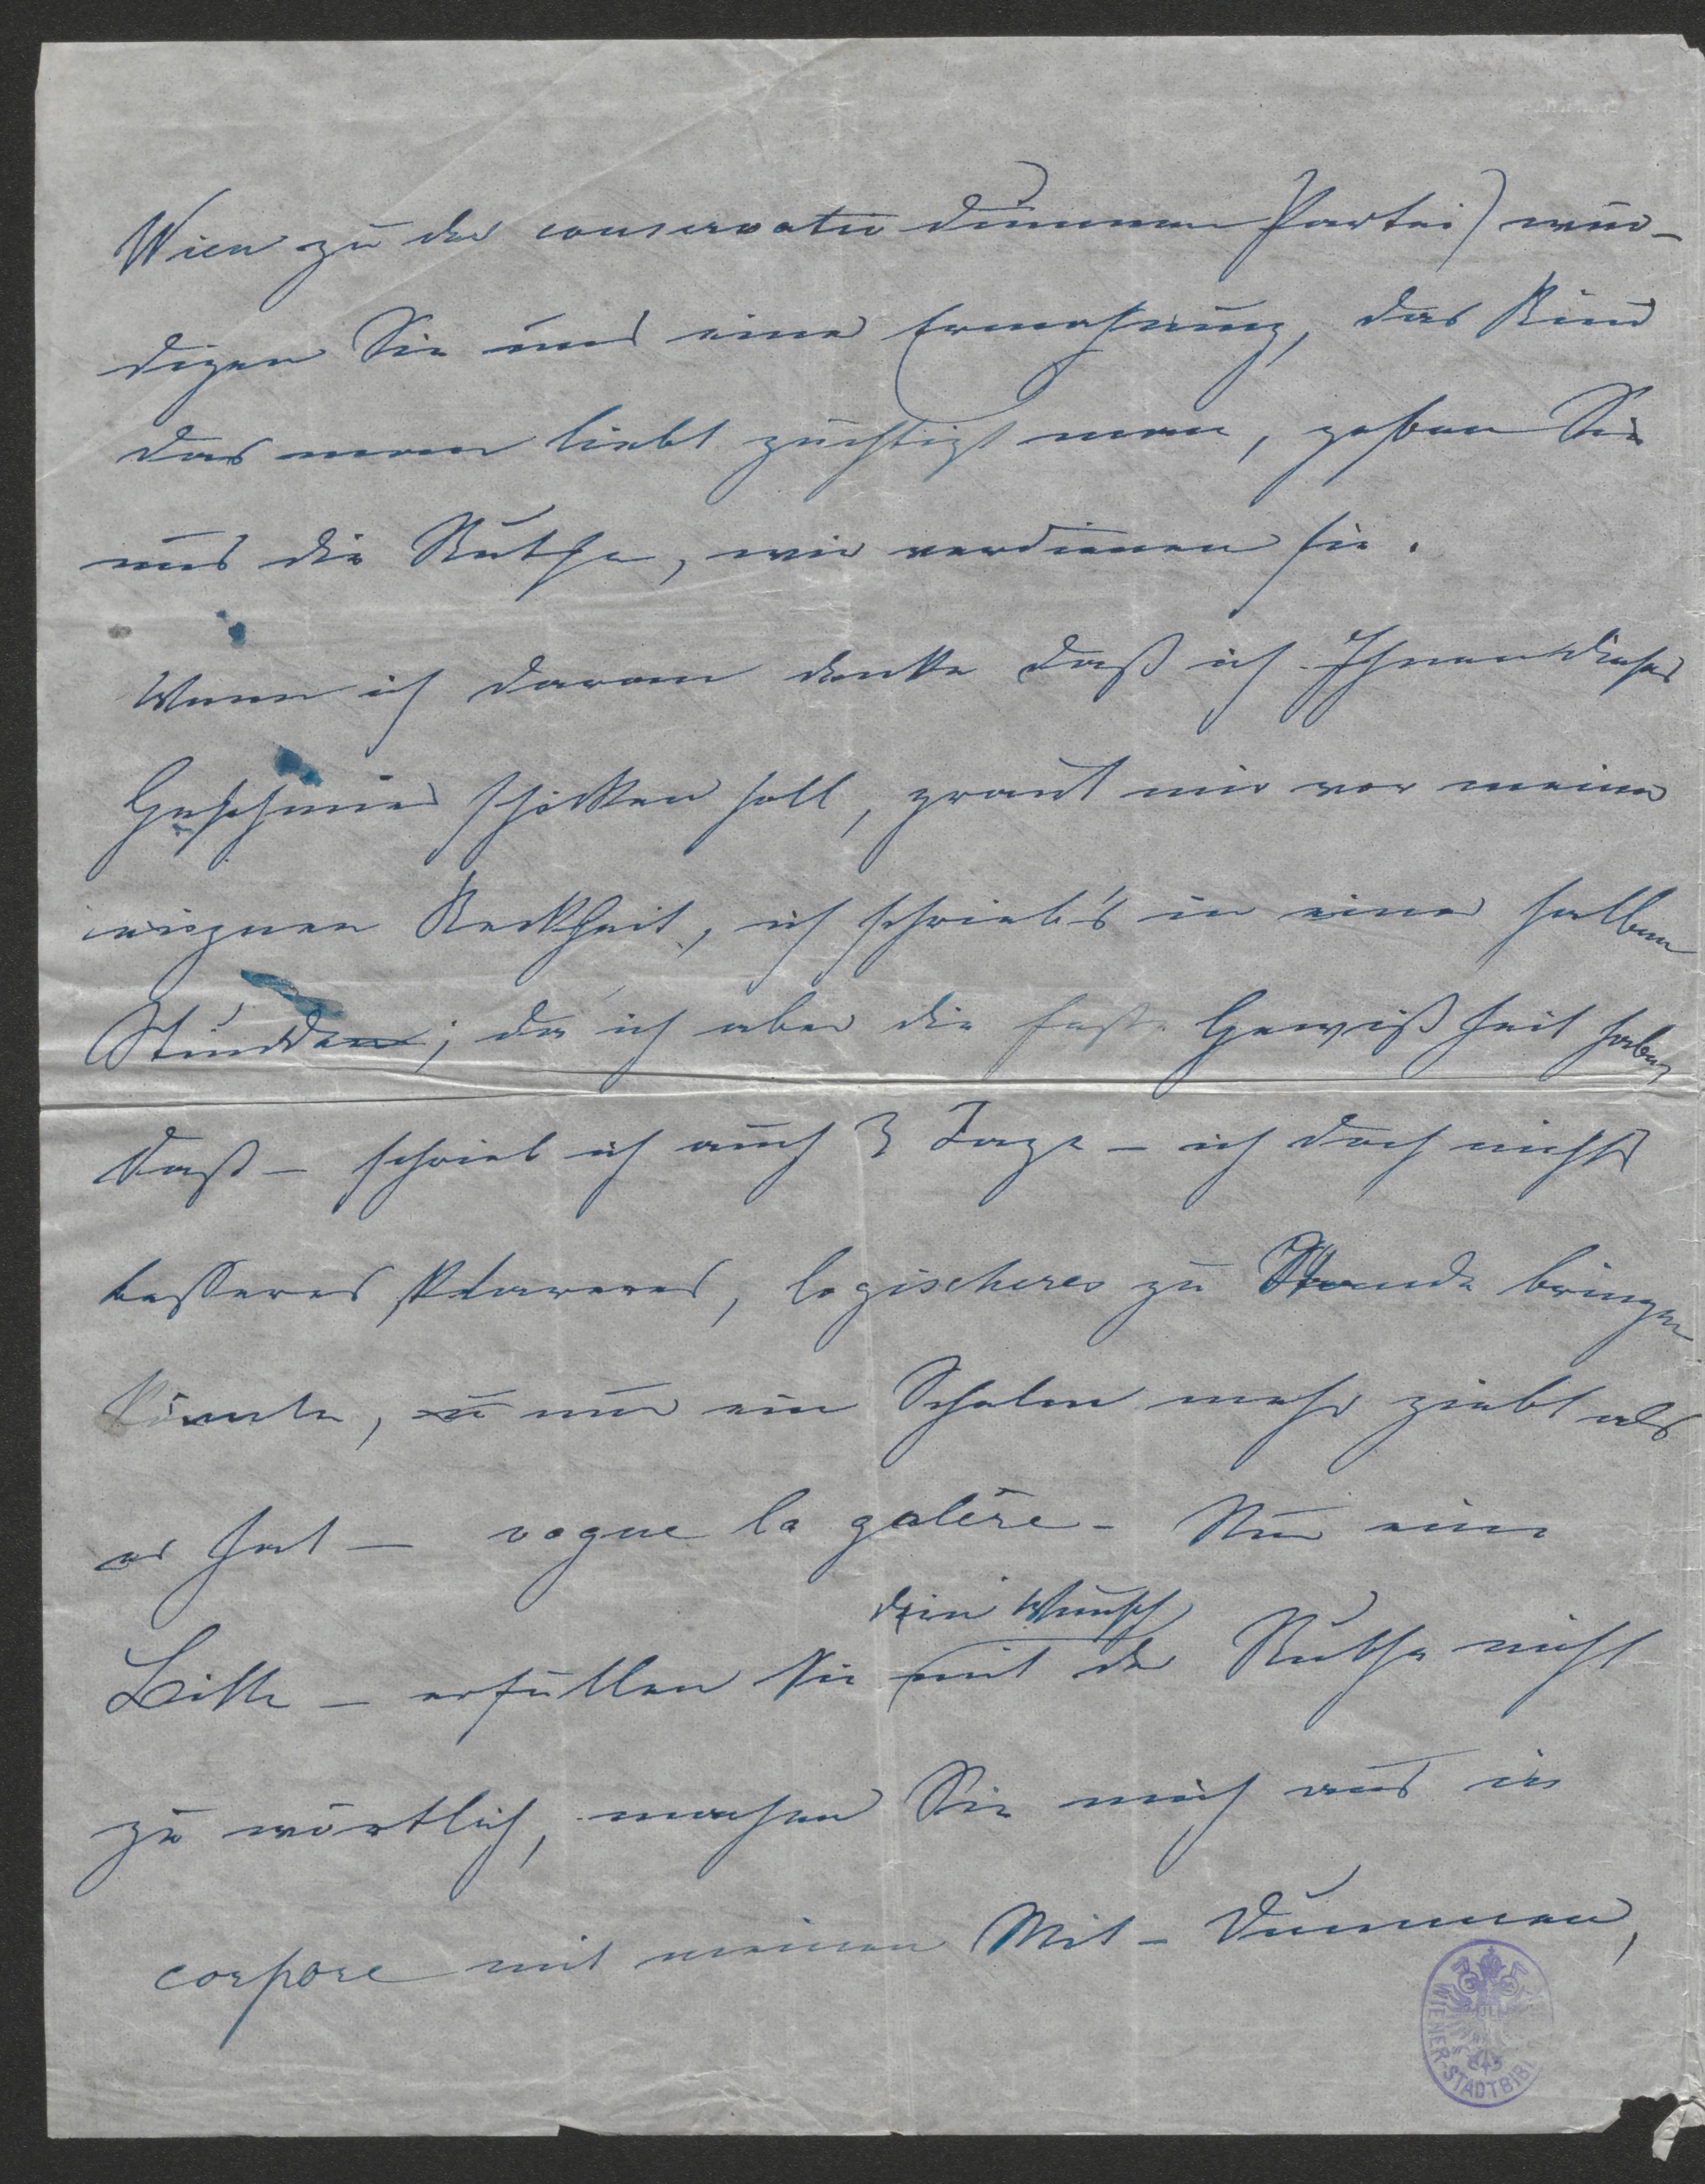 Wien zu der conservativ dummen Partei) wür-
digen Sie uns einer Ermahnung, das Kind
das man liebt züchtigt man, geben Sie
uns die Ruthe, wir verdienen sie.
Wenn ich daran denke daß ich Ihnen dieses
Geschmier schicken soll, graut mir vor meiner
eignen Keckheit, ich schrieb's in einer halben
Stunde; da ich aber die feste Gewißheit habe,
daß – schrieb ich auch 3 Tage – ich doch nichts
besseres klareres, logischeres zu Stande bringen
könnte, u nur ein Schelm mehr giebt als
er hat – vogue la galère – Nur eine
den Wunsch
Bitte – erfüllen Sie mit der Ruthe nicht
zu wörtlich, machen Sie mich aus in
corpore mit meinen Mit-Dummen,
WIENER-STADTBIBL